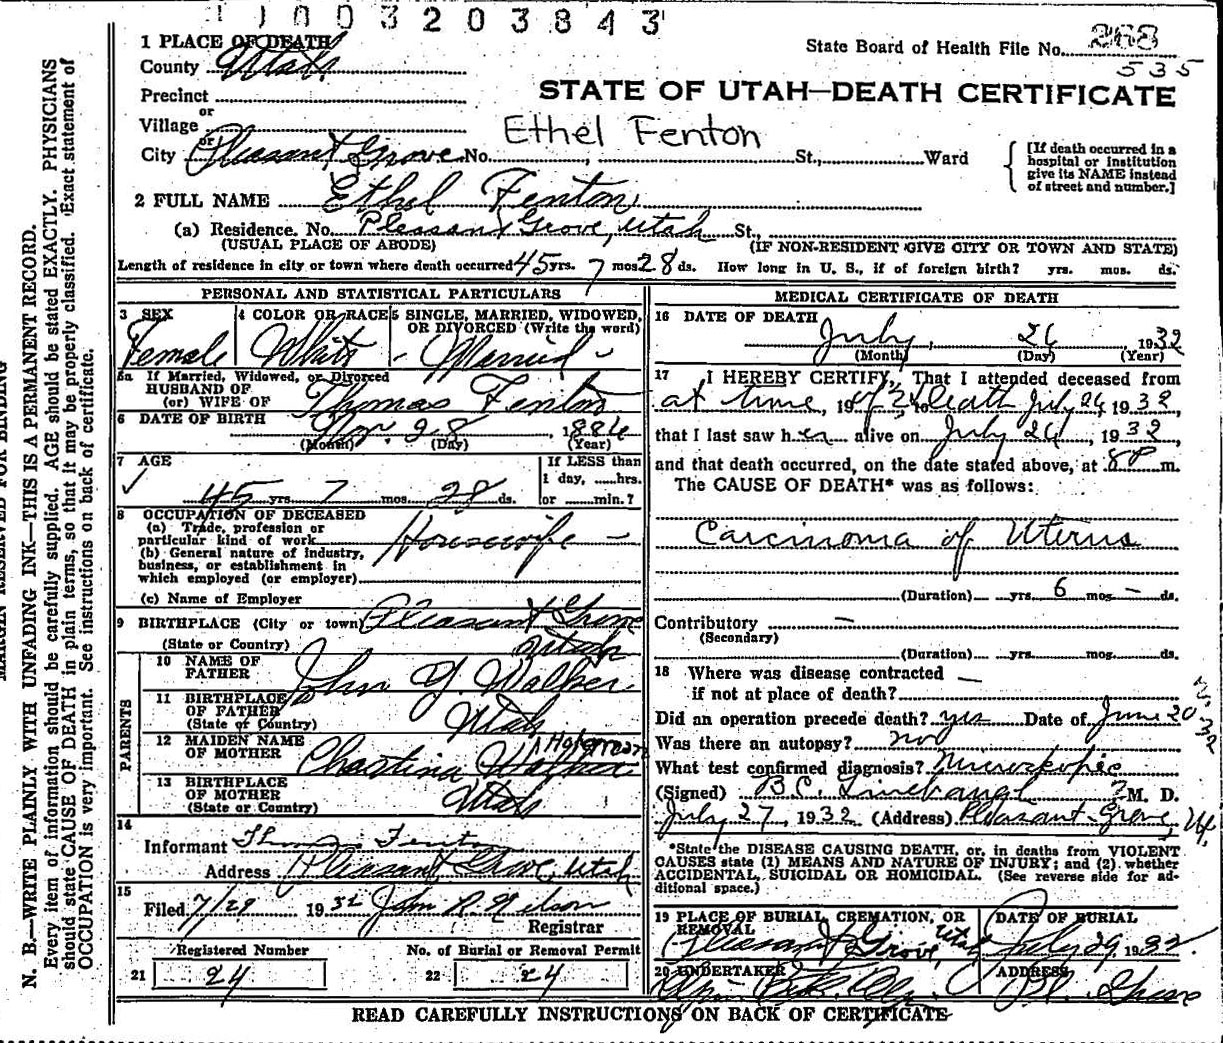 1003203843
1 PLACE OF DEATH
County Utah
State Board of Health File No. 268
535
Precinct
or
Village
or
City Pleasant Grove No. St., Ward
STATE OF UTAH—DEATH CERTIFICATE
Ethel Fenton
[If death occurred in a
hospital or institution
give its NAME instead
of street and number.]
2 FULL NAME Ethel Fenton
(a) Residence. No. Pleasant Grove, Utah St.,
(USUAL PLACE OF ABODE) (IF NON-RESIDENT GIVE CITY OR TOWN AND STATE)
Length of residence in city or town where death occurred 45 yrs. 7 mos. 28 ds. How long in U. S., if of foreign birth? yrs. mos. ds.
PERSONAL AND STATISTICAL PARTICULARS
3 SEX 4 COLOR OR RACE 5 SINGLE, MARRIED, WIDOWED,
OR DIVORCED (Write the word)
Female White - Married -
5a If Married, Widowed, or Divorced
HUSBAND OF
(or) WIFE OF Thomas Fenton
6 DATE OF BIRTH Nov. 28 1886
(Month) (Day) (Year)
7 AGE If LESS than
1 day, hrs.
45 yrs. 7 mos. 28 ds. or min.?
8 OCCUPATION OF DECEASED
(a) Trade, profession or
particular kind of work Housewife -
(b) General nature of industry,
business, or establishment in
which employed (or employer)
(c) Name of Employer
9 BIRTHPLACE (City or town) Pleasant Grove
(State or Country) Utah
PARENTS
10 NAME OF
FATHER John Y. Walker
11 BIRTHPLACE
OF FATHER
(State or Country) Utah
12 MAIDEN NAME
OF MOTHER Christina Walker
13 BIRTHPLACE
OF MOTHER
(State or Country) Utah
14
Informant Thomas Fenton
Address Pleasant Grove, Utah
15
Filed 7/29 1932 John R. Nelson
Registrar
Registered Number No. of Burial or Removal Permit
21 24 22 24
MEDICAL CERTIFICATE OF DEATH
16 DATE OF DEATH
July 26, 1932
(Month) (Day) (Year)
17 I HEREBY CERTIFY, That I attended deceased from
at time, 19 to death July 26 1932,
that I last saw her alive on July 26, 1932,
and that death occurred, on the date stated above, at 8P m.
The CAUSE OF DEATH* was as follows:
Carcinoma of Uterus
(Duration) yrs. 6 mos. - ds.
Contributory -
(Secondary)
(Duration) yrs. mos. ds.
18 Where was disease contracted —
if not at place of death?
Did an operation precede death? yes Date of June 20
Was there an autopsy? no
What test confirmed diagnosis? Microskopic
(Signed) B.C. Linebaugh M. D.
July 27, 1932 (Address) Pleasant Grove, Ut.
*State the DISEASE CAUSING DEATH, or, in deaths from VIOLENT
CAUSES state (1) MEANS AND NATURE OF INJURY; and (2) whether
ACCIDENTAL, SUICIDAL OR HOMICIDAL. (See reverse side for ad-
ditional space.)
19 PLACE OF BURIAL, CREMATION, OR
REMOVAL DATE OF BURIAL
Pleasant Grove, Utah July 29, 1932
20 UNDERTAKER ADDRESS
Pl. Grove
READ CAREFULLY INSTRUCTIONS ON BACK OF CERTIFICATE
MARGIN RESERVED FOR BINDING
N. B.—WRITE PLAINLY WITH UNFADING INK—THIS IS A PERMANENT RECORD.
Every item of information should be carefully supplied. AGE should be stated EXACTLY. PHYSICIANS
should state CAUSE OF DEATH in plain terms, so that it may be properly classified. Exact statement of
OCCUPATION is very important. See instructions on back of certificate.